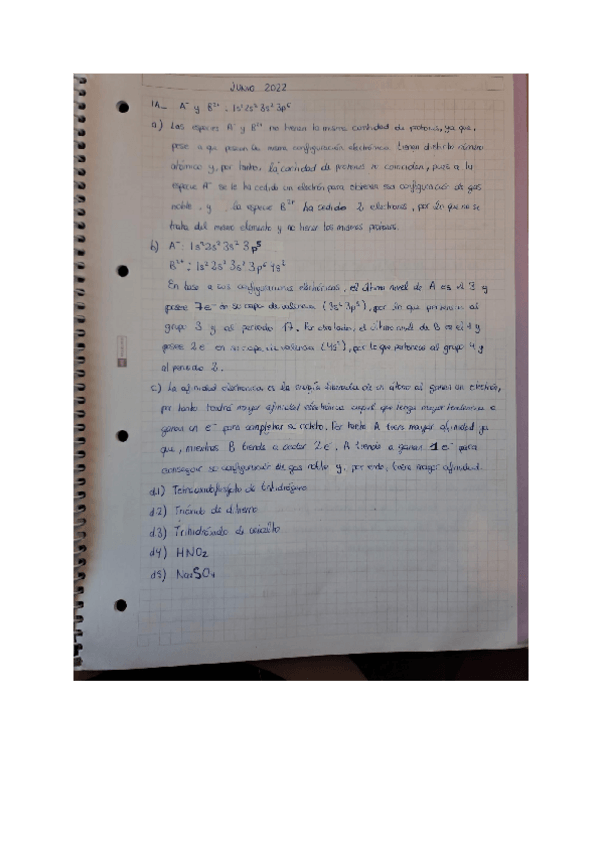 JUNIO 2022
1A_ A⁻ y B²⁺ : 1s² 2s² 3s² 3p⁶
a) Las especies A⁻ y B²⁺ no tienen la misma cantidad de protones, ya que,
pese a que poseen la misma configuración electrónica tienen distinto número
atómico y, por tanto, la cantidad de protones no coinciden, pues a la
especie A⁻ se le ha cedido un electrón para obtener su configuración de gas
noble, y la especie B²⁺ ha cedido 2 electrones, por lo que no se
trata del mismo elemento y no tienen los mismos protones.
b) A⁻: 1s² 2s² 3s² 3p⁵
B²⁺: 1s² 2s² 3s² 3p⁶ 4s²
En base a sus configuraciones electrónicas, el último nivel de A es el 3 y
posee 7e⁻ en su capa de valencia (3s² 3p⁵), por lo que pertenece al
grupo 3 y al periodo 17. Por otro lado, el último nivel de B es el 4 y
posee 2e⁻ en su capa de valencia (4s²), por lo que pertenece al grupo 4 y
al periodo 2.
c) La afinidad electrónica es la energía de un átomo al ganar un electrón,
por tanto tendrá mayor afinidad electrónica aquel que tenga mayor tendencia a
ganar un e⁻ para completar su octeto. Por tanto A tiene mayor afinidad ya
que, mientras B tiende a ceder 2e⁻, A tiende a ganar 1e⁻ para
conseguir su configuración de gas noble y, por ende, tiene mayor afinidad.
d1) de
d2) de
d3) Trihidróxido de
d4) HNO₂
d5) Na₂SO₄